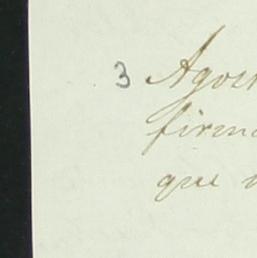 3 Agos
firm
que